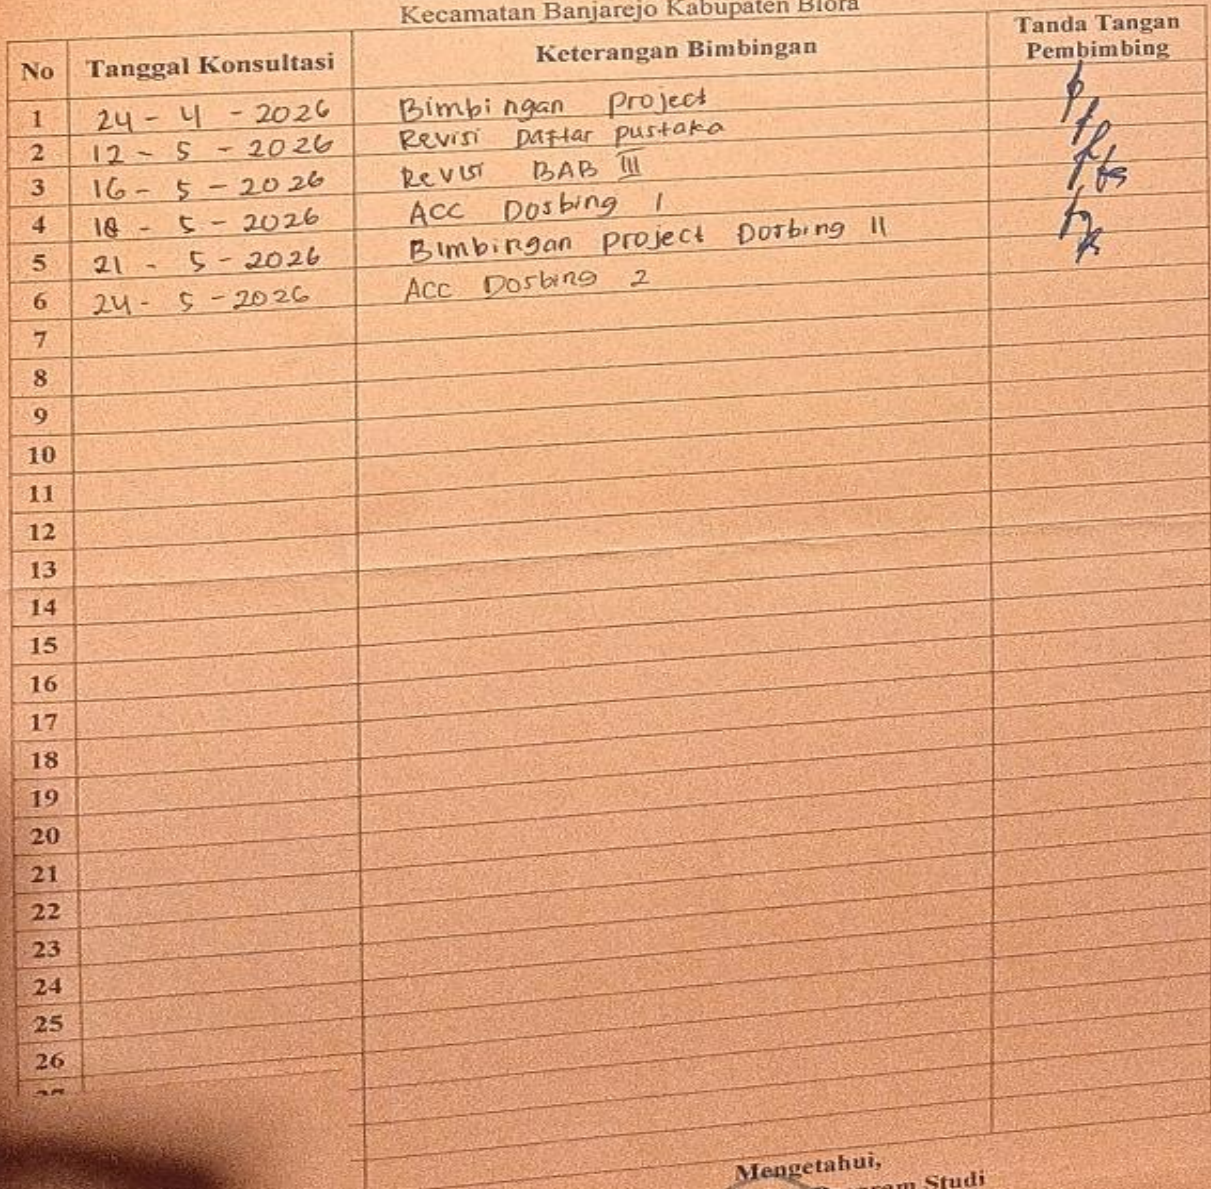 Kecamatan Banjarejo Kabupaten Blora
No Tanggal Konsultasi Keterangan Bimbingan Tanda Tangan Pembimbing
1 24 - 4 - 2026 Bimbingan Project
2 12 - 5 - 2026 Revisi Daftar pustaka
3 16 - 5 - 2026 Revisi BAB III
4 18 - 5 - 2026 ACC Dosbing 1
5 21 - 5 - 2026 Bimbingan project Dosbing II
6 24 - 5 - 2026 ACC Dosbing 2
7
8
9
10
11
12
13
14
15
16
17
18
19
20
21
22
23
24
25
26
Mengetahui,
Program Studi